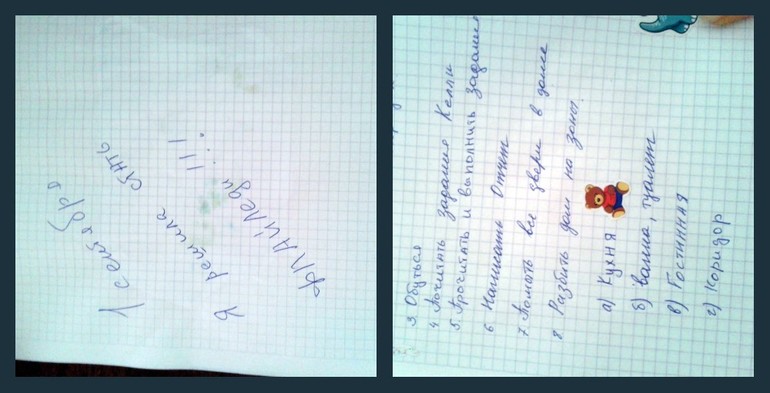 1 сентября
Я решила стать
флайледи!!!
3 Обуться
4 Почитать задания Келли
5. Прочитать и выполнить задание
6 Написать Отчёт
7 Помыть все двери в доме
8 Разбить дом на зоны.
а) Кухня
б) ванна, туалет
в) Гостинная
г) Коридор